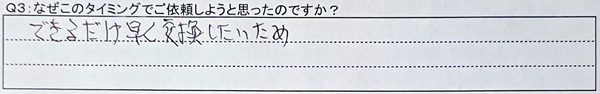 Q3:なぜこのタイミングでご依頼しようと思ったのですか？
できるだけ早く交換したいため